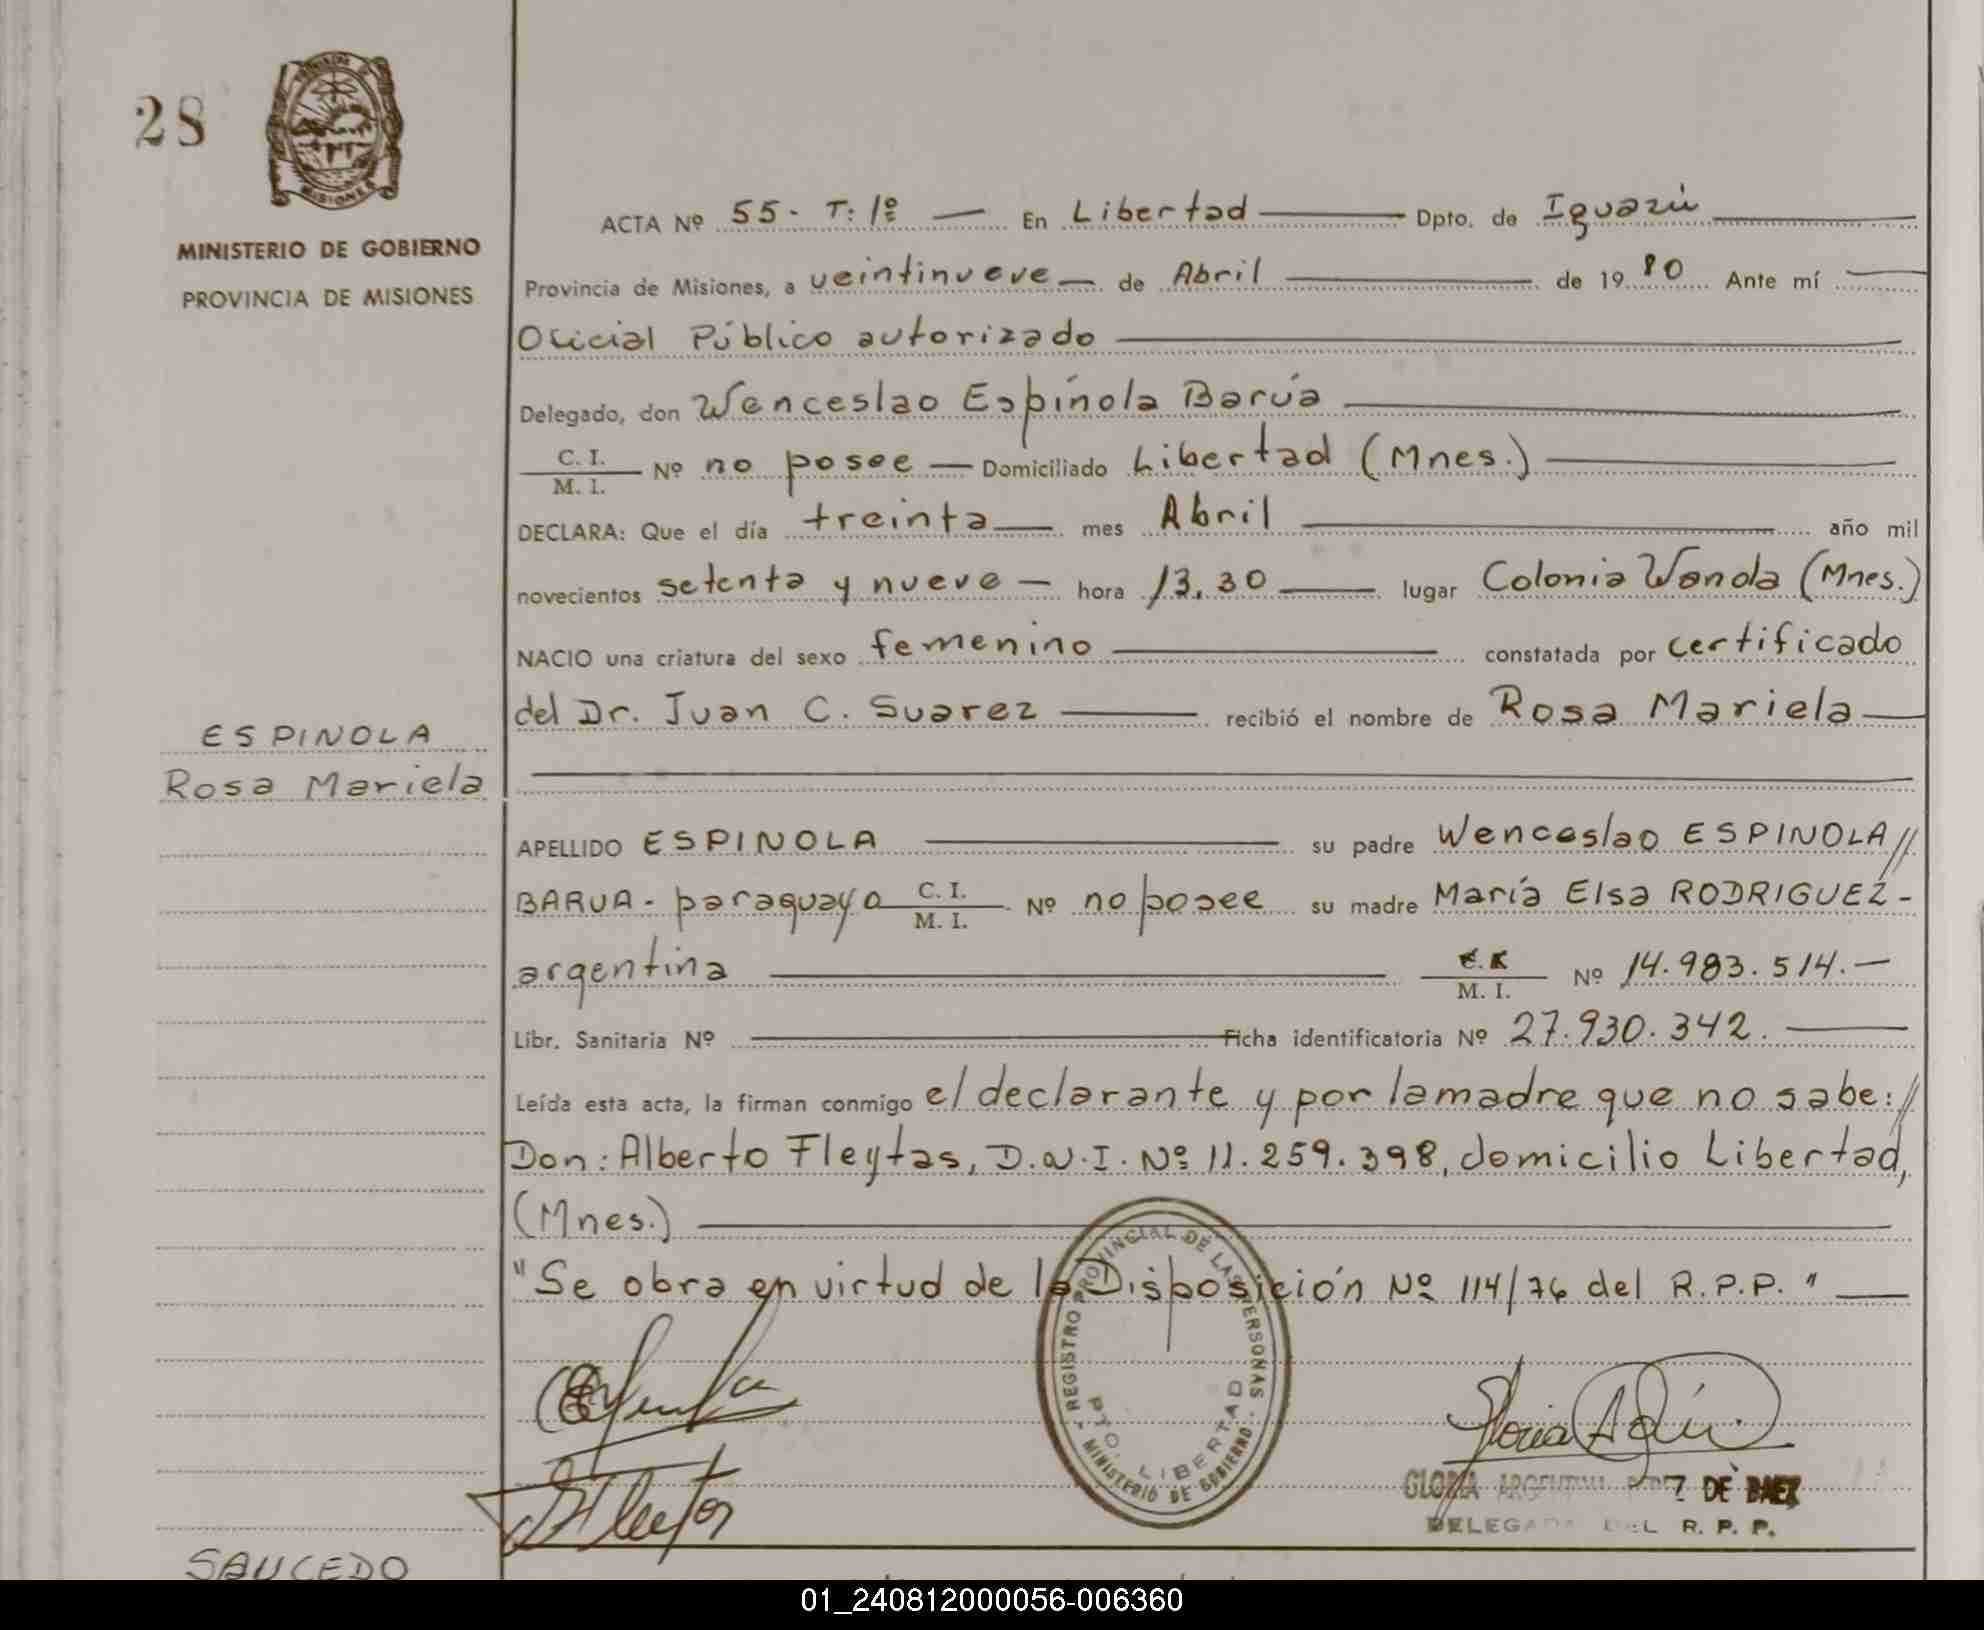 28
PROVINCIA DE
MISIONES
MINISTERIO DE GOBIERNO
PROVINCIA DE MISIONES
ACTA Nº 55- T: 1º — En Libertad Dpto. de Iguazú
Provincia de Misiones, a veintinueve — de Abril de 1980 Ante mí
Oficial Público autorizado
Delegado, don Wenceslao Espínola Barúa
C. I.
M. I. Nº no posee — Domiciliado Libertad (Mnes.)
DECLARA: Que el día treinta mes Abril año mil
novecientos setenta y nueve — hora 13,30 lugar Colonia Wanda (Mnes.)
NACIO una criatura del sexo femenino constatada por certificado
del Dr. Juan C. Suarez recibió el nombre de Rosa Mariela
ESPINOLA
Rosa Mariela
APELLIDO ESPINOLA su padre Wenceslao ESPINOLA//
BARUA - paraguayo C. I. / M. I. Nº no posee su madre María Elsa RODRIGUEZ -
argentina M. I. Nº 14.983.514.—
Libr. Sanitaria Nº Ficha identificatoria Nº 27.930.342.
Leída esta acta, la firman conmigo el declarante y por la madre que no sabe://
Don: Alberto Fleytas, D.N.I. Nº 11.259.398, domicilio Libertad,
(Mnes.)
"Se obra en virtud de la Disposición Nº 114/76 del R.P.P."
REGISTRO PROVINCIAL DE LAS PERSONAS
MINISTERIO DE GOBIERNO
PTO. LIBERTAD
GLORIA ARGENTINA DE BAEZ
DELEGADA DEL R. P. P.
SAUCEDO
01_240812000056-006360